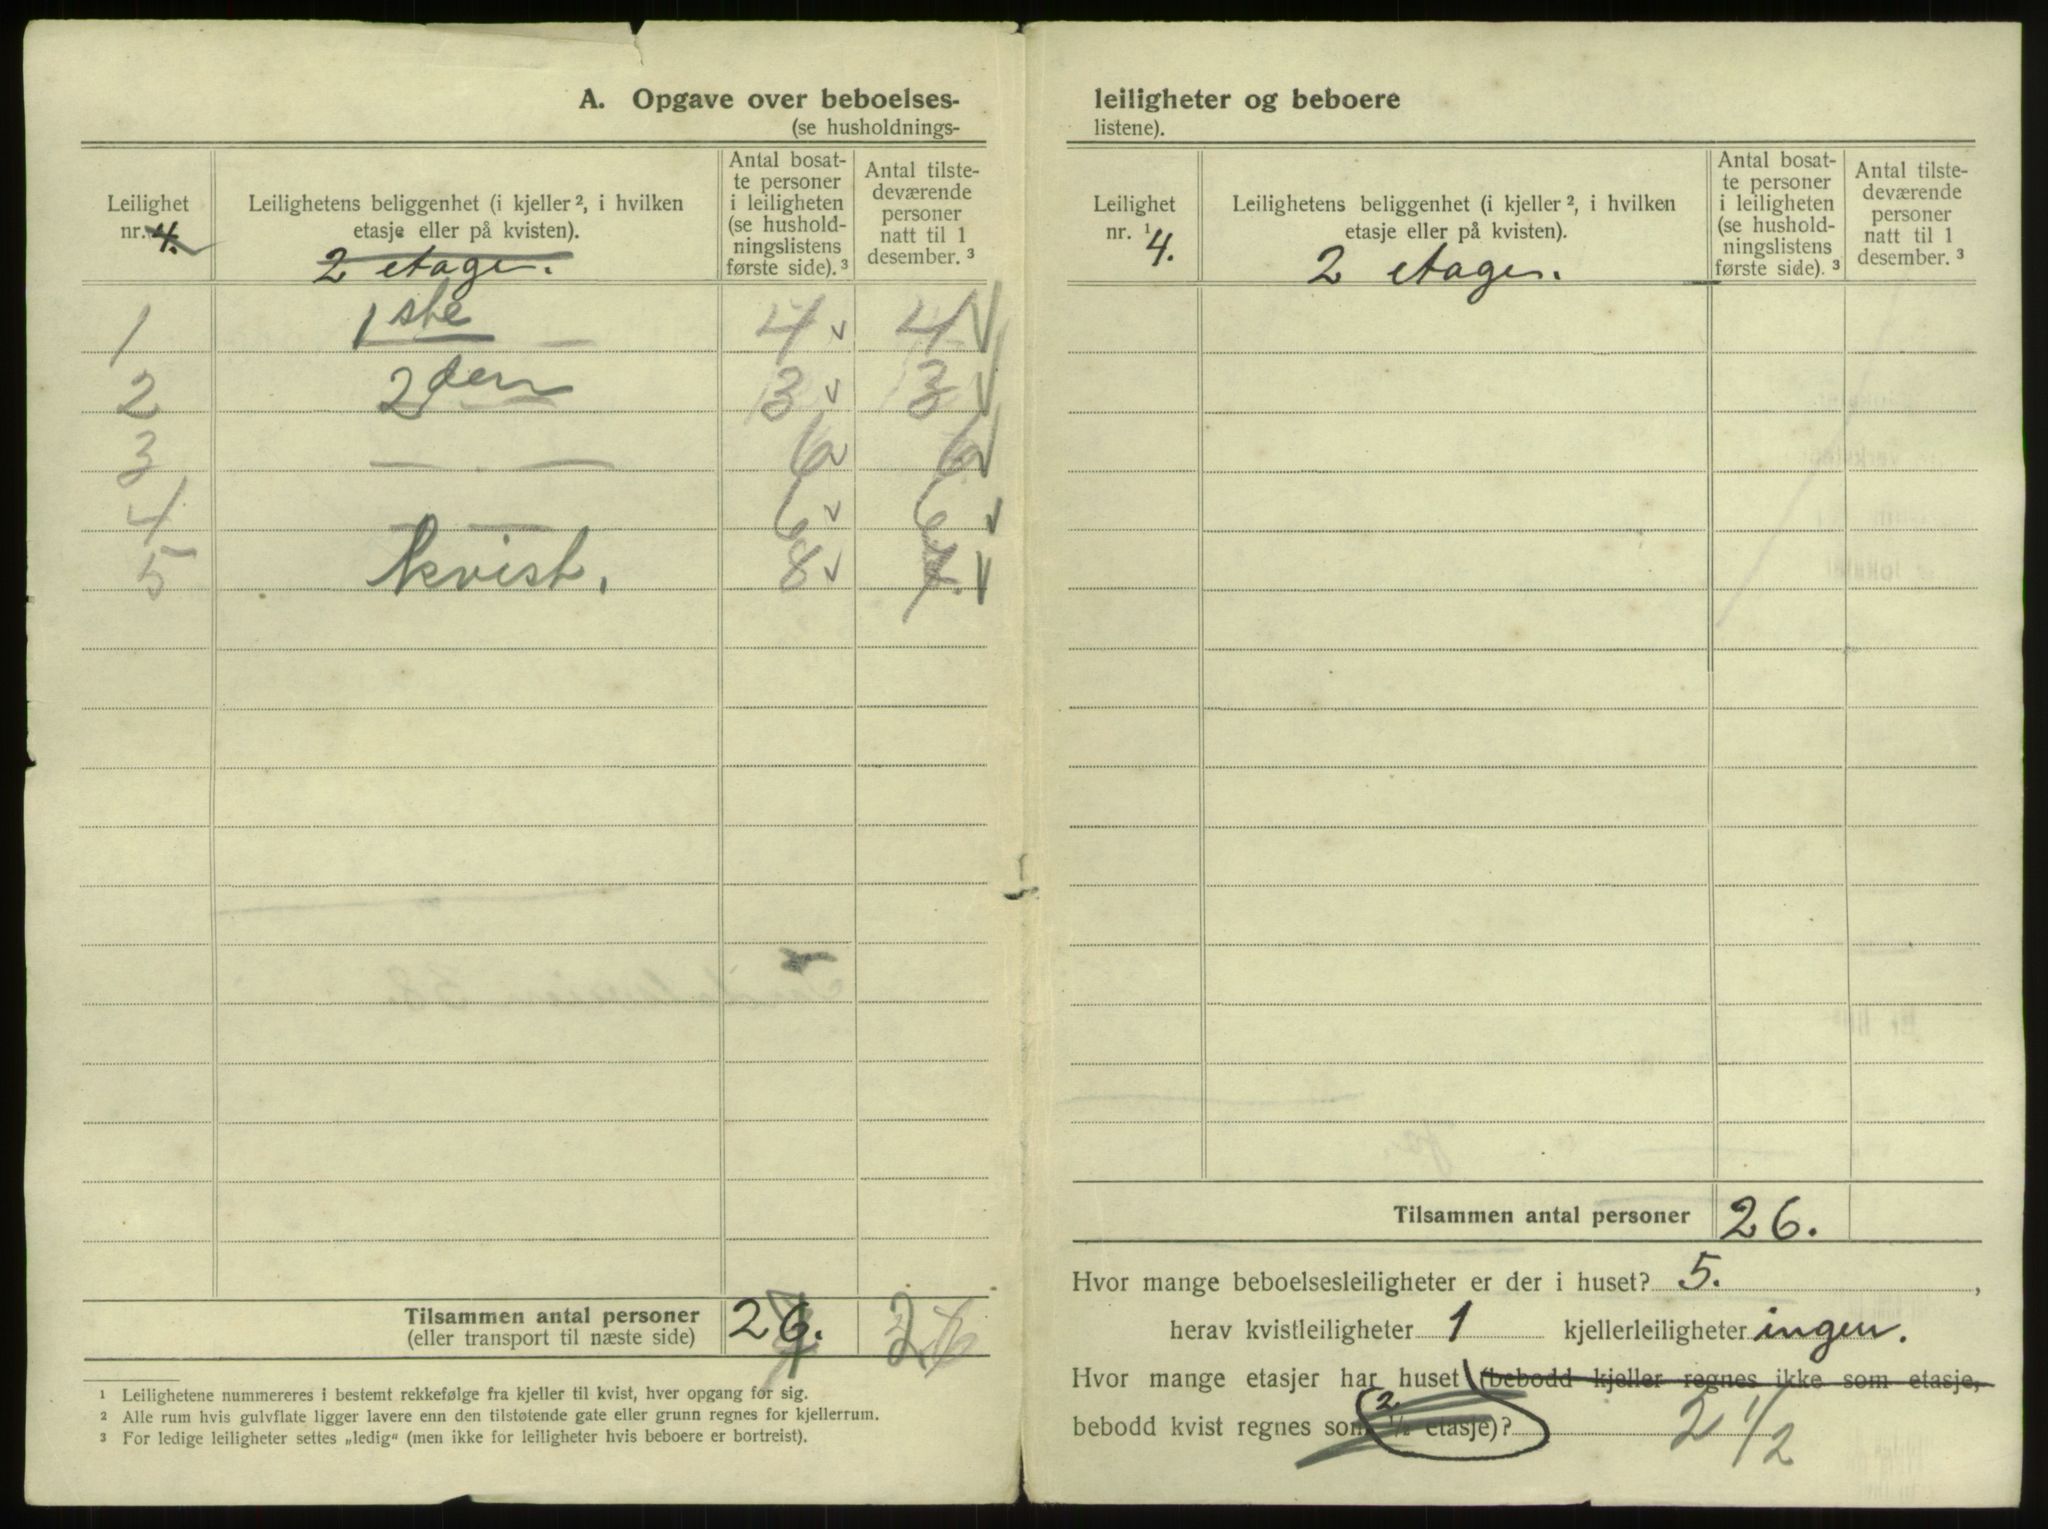 A. Opgave over beboelses-
(se husholdnings-
Leilighet
nr. 4.
Leilighetens beliggenhet (i kjeller ², i hvilken
etasje eller på kvisten).
2 etage.
Antal bosat-
te personer
i leiligheten
(se hushold-
ningslistens
første side). ³
Antal tilste-
deværende
personer
natt til 1
desember. ³
1 1ste 4 v 4 v
2 2den 3 v 3 v
3 — " — 6 v 6 v
4 — " — 6 v 6 v
5 kvist. 8 v 7. v
Tilsammen antal personer
(eller transport til næste side) 26. 26
¹ Leilighetene nummereres i bestemt rekkefølge fra kjeller til kvist, hver opgang for sig.
² Alle rum hvis gulvflate ligger lavere enn den tilstøtende gate eller grunn regnes for kjellerrum.
³ For ledige leiligheter settes „ledig“ (men ikke for leiligheter hvis beboere er bortreist).
leiligheter og beboere
listene).
Leilighet
nr. ¹ 4.
Leilighetens beliggenhet (i kjeller ², i hvilken
etasje eller på kvisten).
2 etager.
Antal bosat-
te personer
i leiligheten
(se hushold-
ningslistens
første side). ³
Antal tilste-
deværende
personer
natt til 1
desember. ³
Tilsammen antal personer 26.
Hvor mange beboelsesleiligheter er der i huset? 5. ,
herav kvistleiligheter 1 kjellerleiligheter ingen.
Hvor mange etasjer har huset (bebodd kjeller regnes ikke som etasje,
bebodd kvist regnes som ½ etasje)? 2 2 1/2